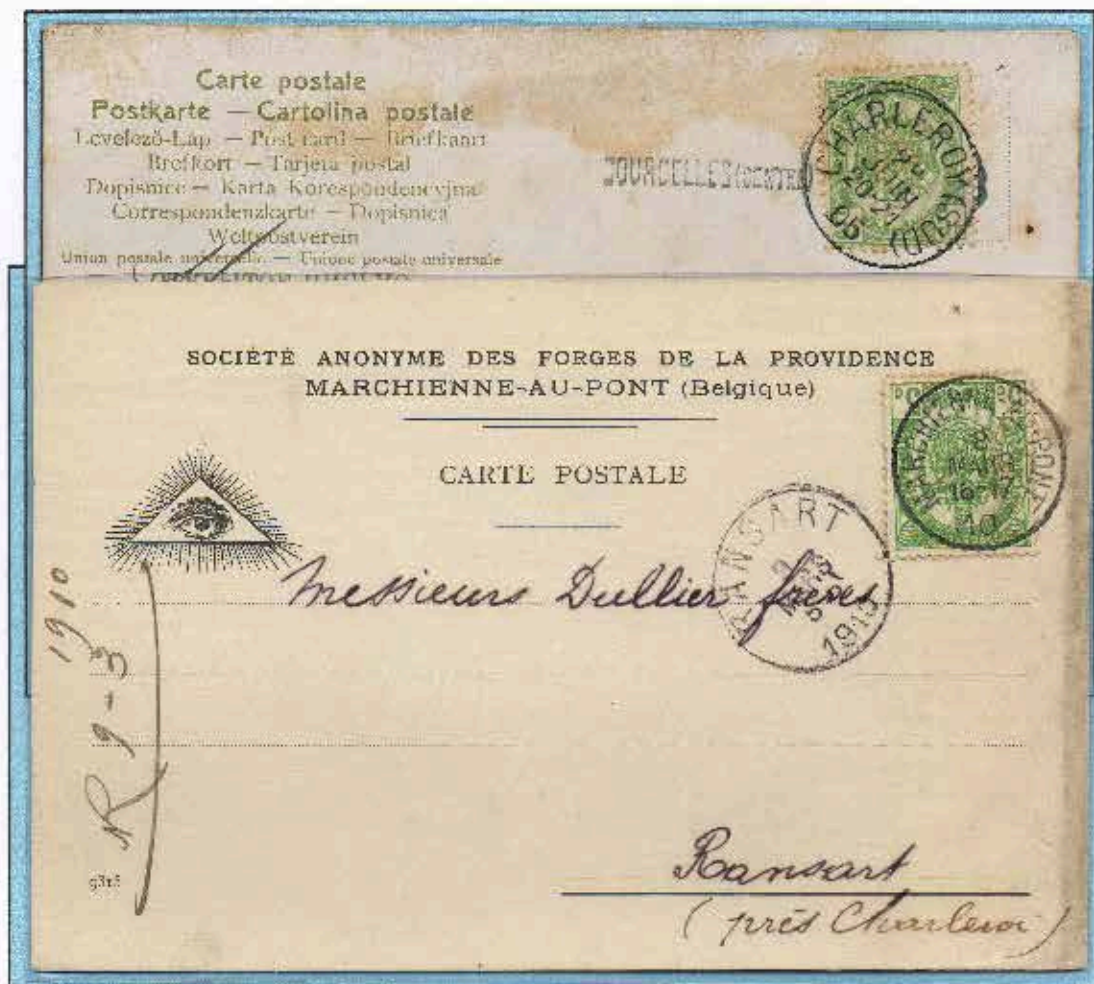 Carte postale
Postkarte — Cartolina postale
Levelező-Lap — Post card — Briefkaart
Brefkort — Tarjeta postal
Dopisnice — Karta Korespondencyjna
Correspondenzkarte — Dopisnica
Weltpostverein
Union postale universelle — Unione postale universale
COURCELLES (CENTRE)
CHARLEROY (SUD)
JUIN
20-21
05
SOCIÉTÉ ANONYME DES FORGES DE LA PROVIDENCE
MARCHIENNE-AU-PONT (Belgique)
CARTE POSTALE
MARCHIENNE-AU-PONT
8
MARS
16-17
10
RANSART
9
MARS
1910
Messieurs Dullier frères
1910
R 9-3
Ransart
(près Charleroi)